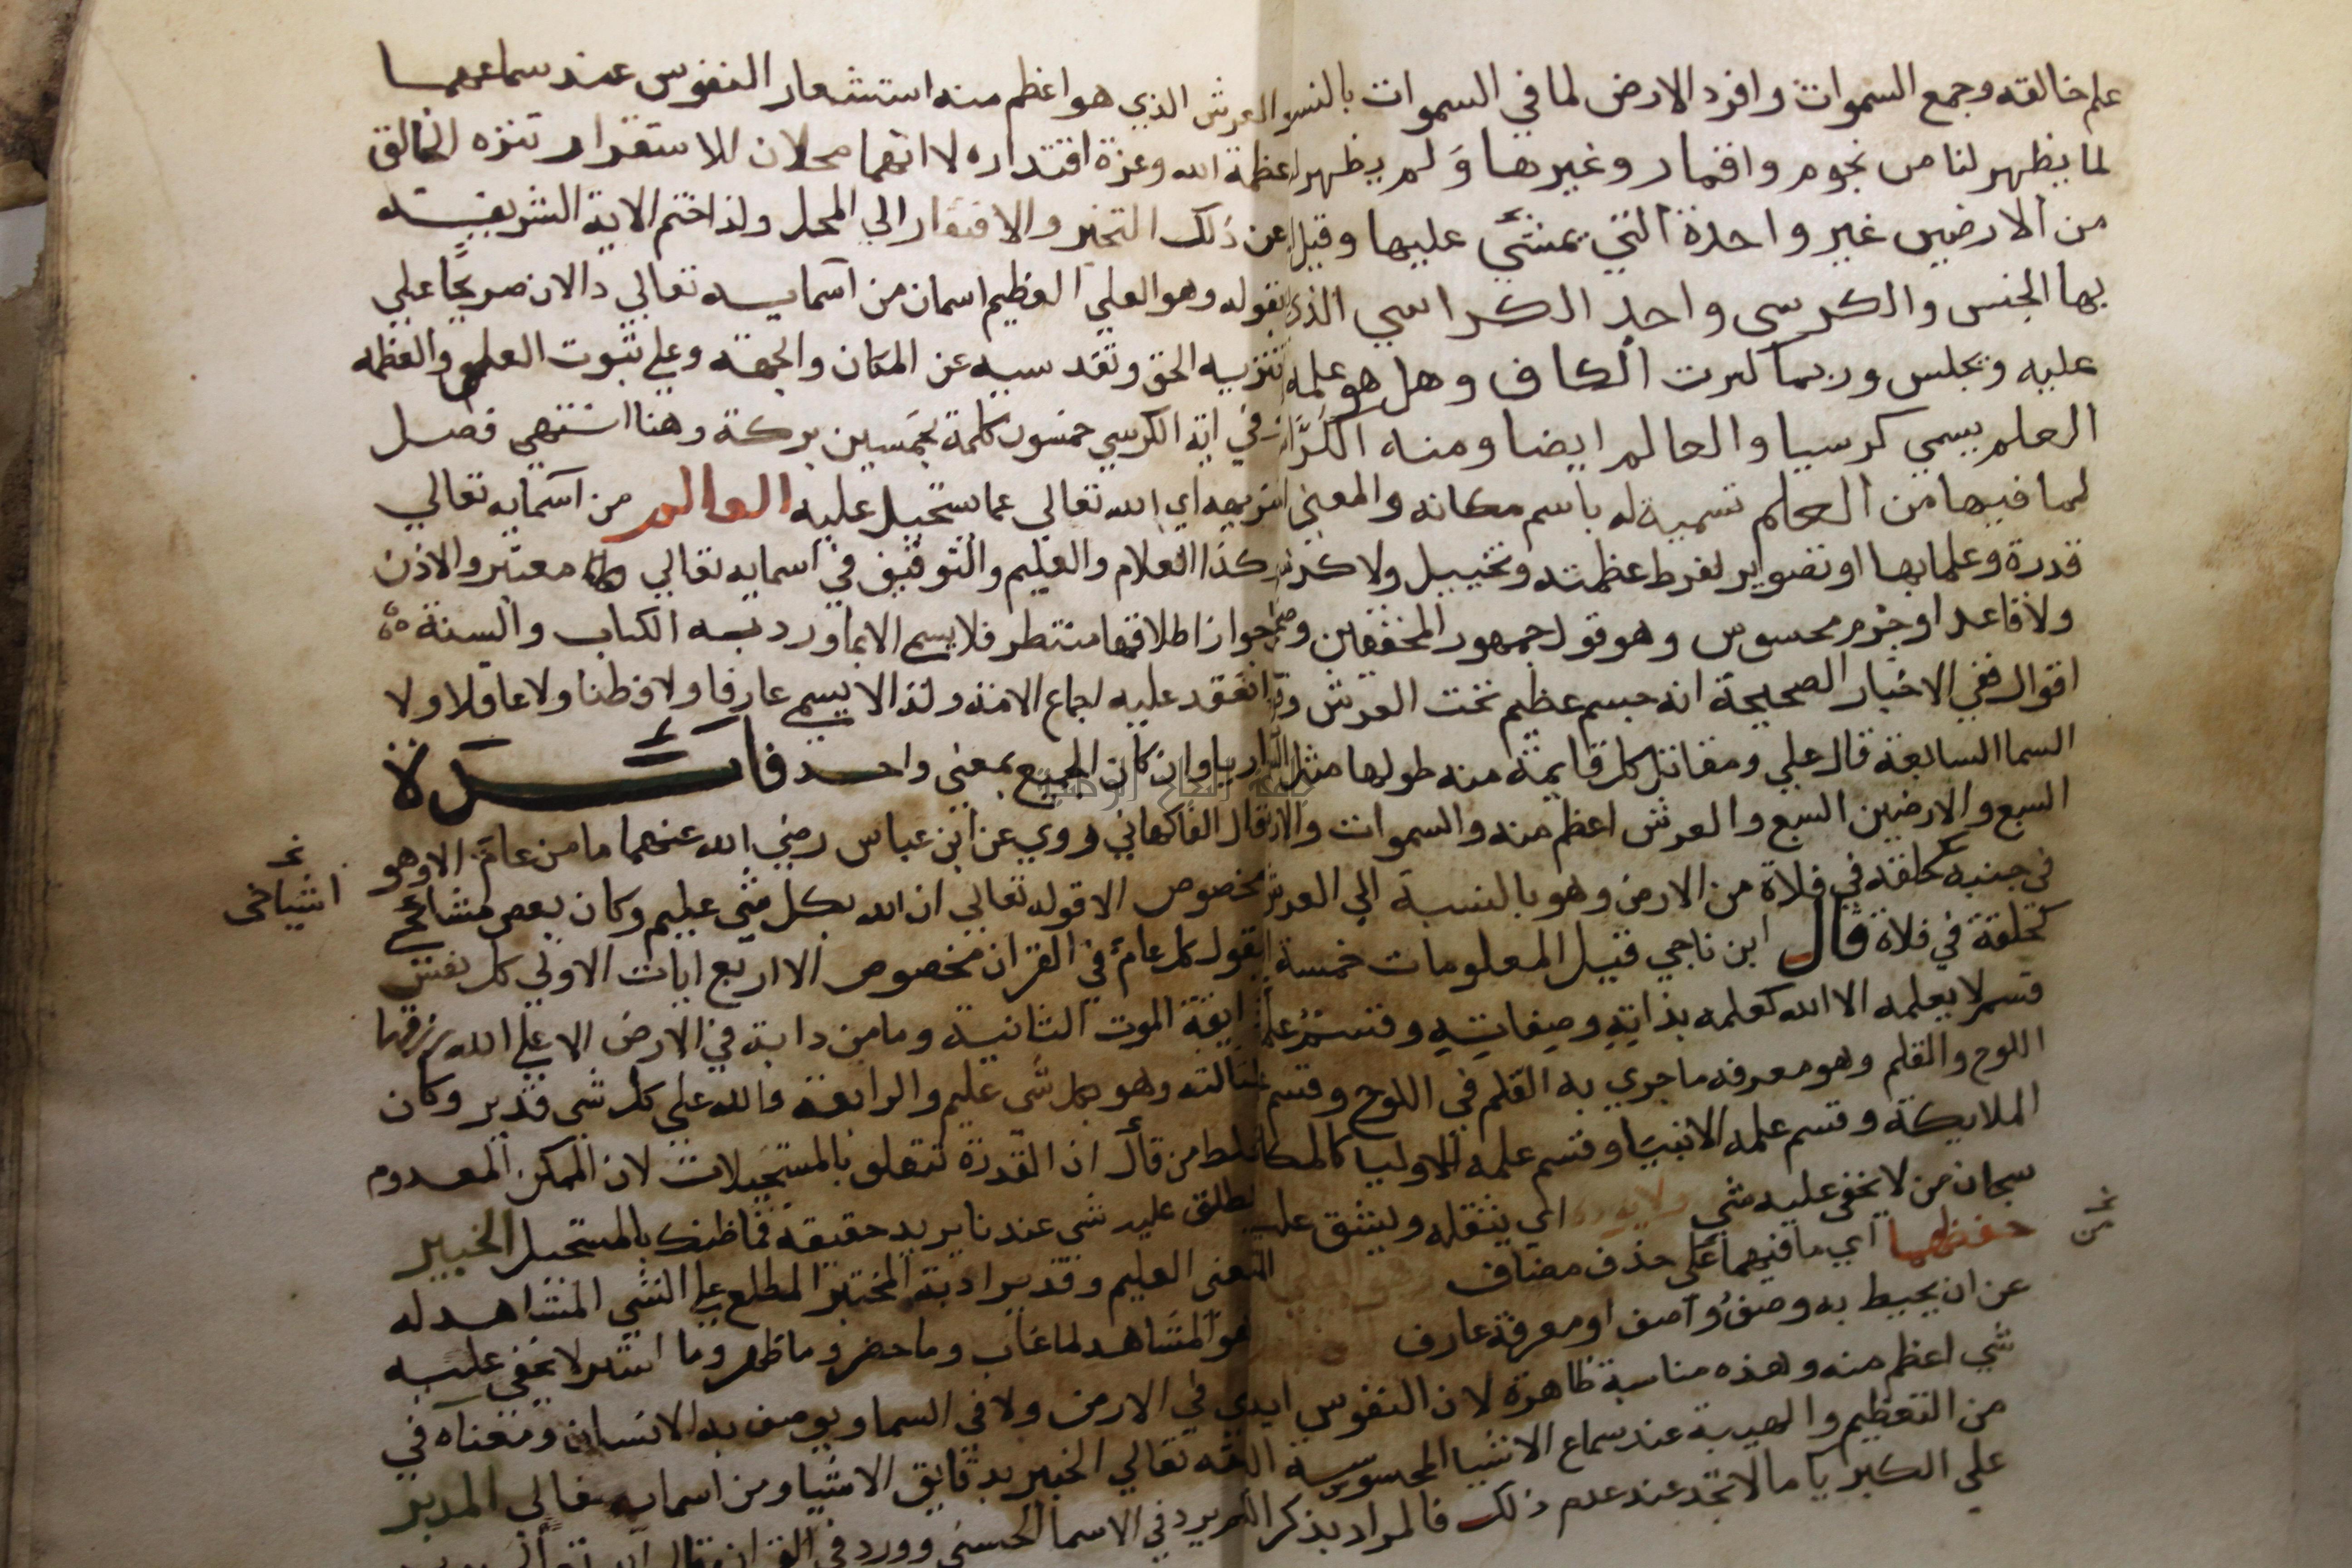 علم خالقه وجمع السموات وافرد الارض لما في السموات بالنسبة
لما يظهر لنا من نجوم واقمار وغيرها ولم يظهر لنا
من الارضين غير واحدة التي نمشي عليها وقيل
بها الجنس والكرسي واحد الكراسي الذي
عليه ويجلس وربما كسرت الكاف وهل هو علمه
العلم يسمي كرسيا والعالم ايضا ومنه الكراسة
لما فيها من العلم تسمية له باسم مكانه والمعني
قدرة وعلما بها او تصوير لفرط عظمته وتخييل ولا كرسي
ولا قاعد او جرم محسوس وهو قول جمهور المحققين
اقوال ففي الاخبار الصحيحة انه جسم عظيم تحت العرش
السما السابعة قال علي ومقاتل كل قايمة منه طولها مثل
السبع والارضين السبع والعرش اعظم منه والسموات والارض
في جنبه كحلقة في فلاة من الارض وهو بالنسبة الي العرش
كحلقة في فلاة قال ابن ناجي قيل المعلومات خمسة
قسم لا يعلمه الا الله كعلمه بذاته وصفاته وقسم علمه
اللوح والقلم وهو معرفة ما جري به القلم في اللوح وقسم
الملايكة وقسم علمه الانبيا وقسم علمه الاوليا
سبحان من لا يخفي عليه شي ولا يوده اي يثقله ويشق عليه
حفظهما اي ما فيهما علي حذف مضاف
عن ان يحيط به وصف واصف او معرفة عارف
شي اعظم منه وهذه مناسبة ظاهرة لان النفوس
من التعظيم والهيبة عند سماع الاشيا المحسوسة
علي الكبريا ما لا تجد عند عدم ذلك فالمراد بذكر
العرش الذي هو اعظم منه استشعار النفوس عند سماعهما
عظمة الله وعزة اقتداره لا انهما محلان للاستقرار تنزه الخالق
عن ذلك التحيز والافتقار الي المحل ولذا ختم الاية الشريفة
بقوله وهو العلي العظيم اسمان من اسمايه تعالي دالان صريحا علي
تنزيه الحق وتقديسه عن المكان والجهة وعلي ثبوت العلو والعظمة
في اية الكرسي خمسون كلمة بخمسين بركة وهنا انتهي فصل
تنزيهه اي الله تعالي عما يستحيل عليه العالم من اسمايه تعالي
وكذا العلام والعليم والتوقيف في اسمايه تعالي معتبر والاذن
جواز اطلاقها منتظر فلا يسمي الا بما ورد به الكتاب والسنة
انعقد عليه اجماع الامة ولذا لا يسمي عارفا ولا فطنا ولا عاقلا ولا
داريا وان كان الجميع بمعني واحد فايدة
قال الفاكهاني وروي عن ابن عباس رضي الله عنهما ما من عام الا وهو
مخصوص الا قوله تعالي ان الله بكل شي عليم وكان بعض مشايخي
يقول كل عام في القران مخصوص الا اربع ايات الاولي كل نفس
ذايقة الموت الثانية وما من دابة في الارض الا علي الله رزقها
الثالثة وهو بكل شي عليم والرابعة والله علي كل شي قدير وكان
غلط من قال ان القدرة تتعلق بالمستحيلات لان الممكن المعدوم
يطلق عليه شي عندنا يريد حقيقة فما ظنك بالمستحيل الخبير
بمعني العليم وقد يراد به المختبر المطلع علي الشي المشاهد له
هو المشاهد لما غاب وما حضر وما ظهر وما استتر لا يخفي عليه
شي في الارض ولا في السما ويوصف به الانسان ومعناه في
حقه تعالي الخبير بدقايق الاشيا ومن اسمايه تعالي المدبر
لم يرد في الاسما الحسني وورد في القران
اشياخي